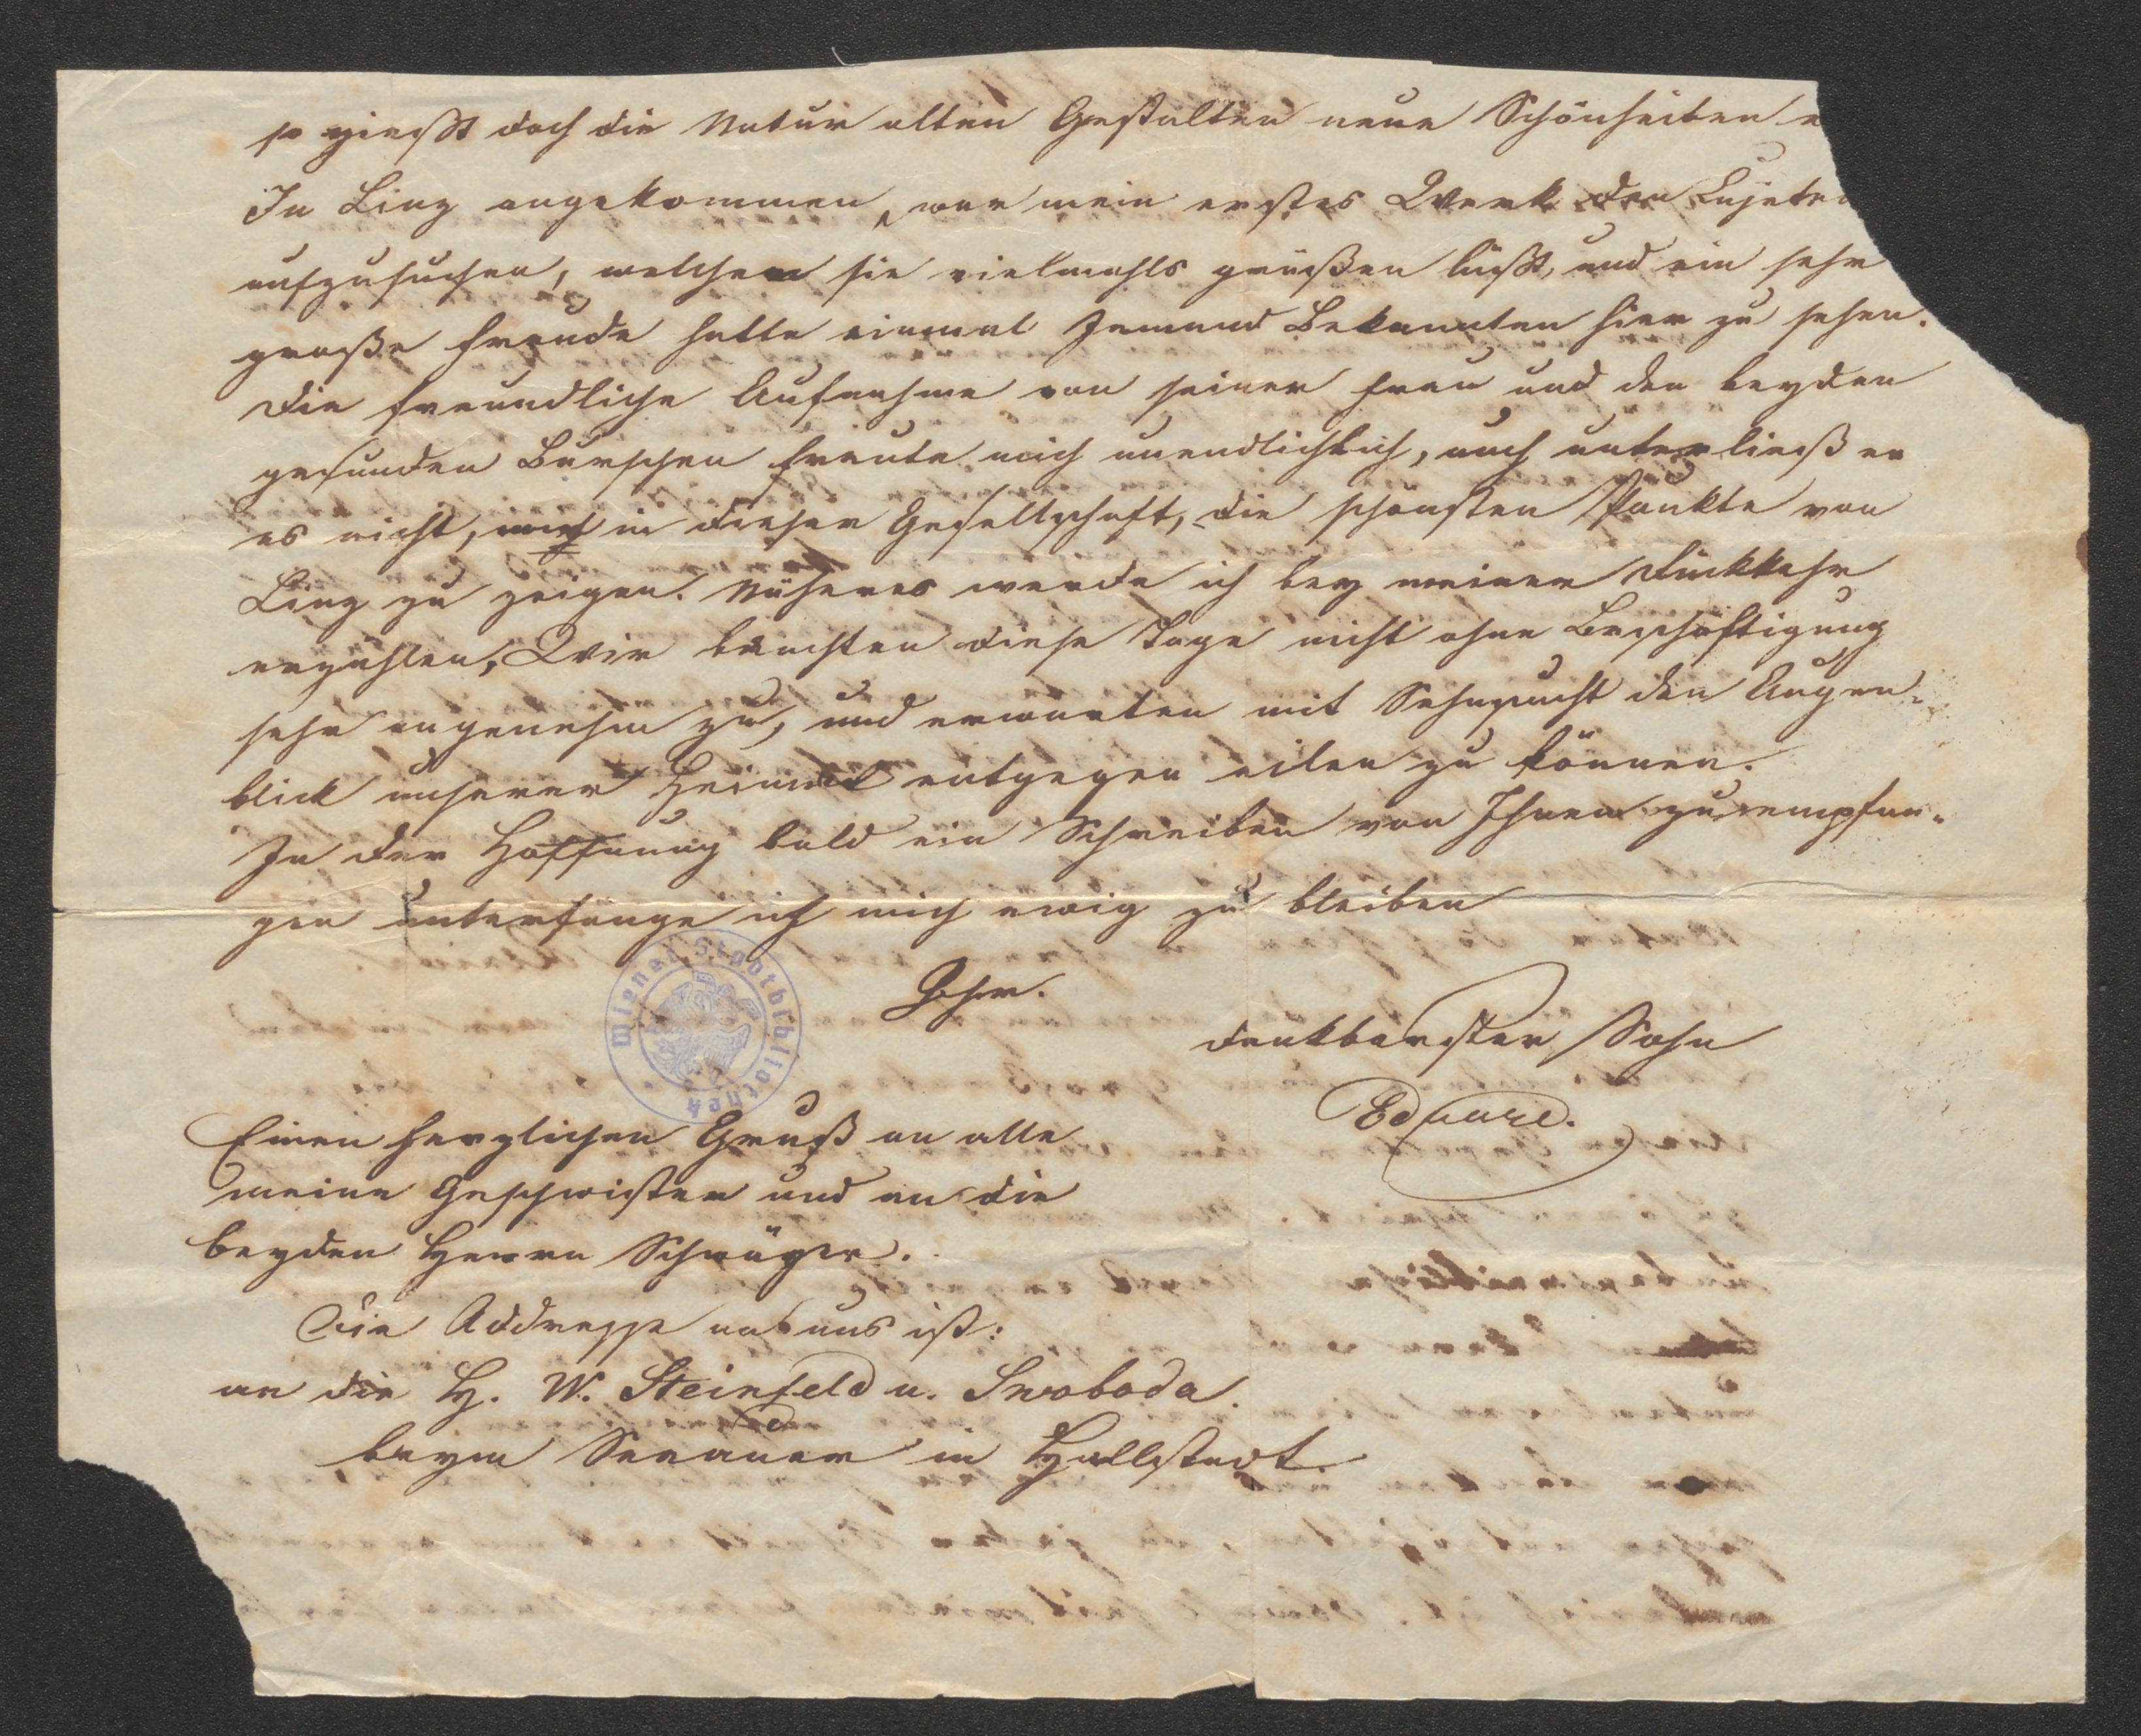 so gießt doch die Natur alten Gestalten neue Schönheiten e
In Linz angekommen, war mein erstes Werk den
aufzusuchen, welcher sie vielmahls grüßen läßt, und ein sehr
große Freude hatte einmal Jemand Bekannten hier zu sehen.
Die freundliche Aufnahme von seiner Frau und den beyden
gesunden Burschen freute mich unendlichlich, auch unterließ er
es nicht, mich in dieser Gesellschaft, die schönsten Punkte von
Linz zu zeigen. Näheres werde ich bey meiner Rückkehr
erzählen, Wir brachten diese Tage nicht ohne Beschäftigung
sehr angenehm zu, und erwarten mit Sehnsucht den Augen-
blick unserer Heimat entgegen eilen zu können.
In der Hoffnung bald ein Schreiben von Ihnen zu empfan-
gen unterfange ich mich ewig zu bleiben
Ihr.
dankbarster Sohn
Eduard.
Wiener Stadtbibliothek
Einen herzlichen Gruß an alle
meine Geschwister und an die
beyden Herrn Schwäger.
Die Addresse an uns ist:
an die H. W. Steinfeld u. Swoboda.
beym Seeauer in Hallstadt.